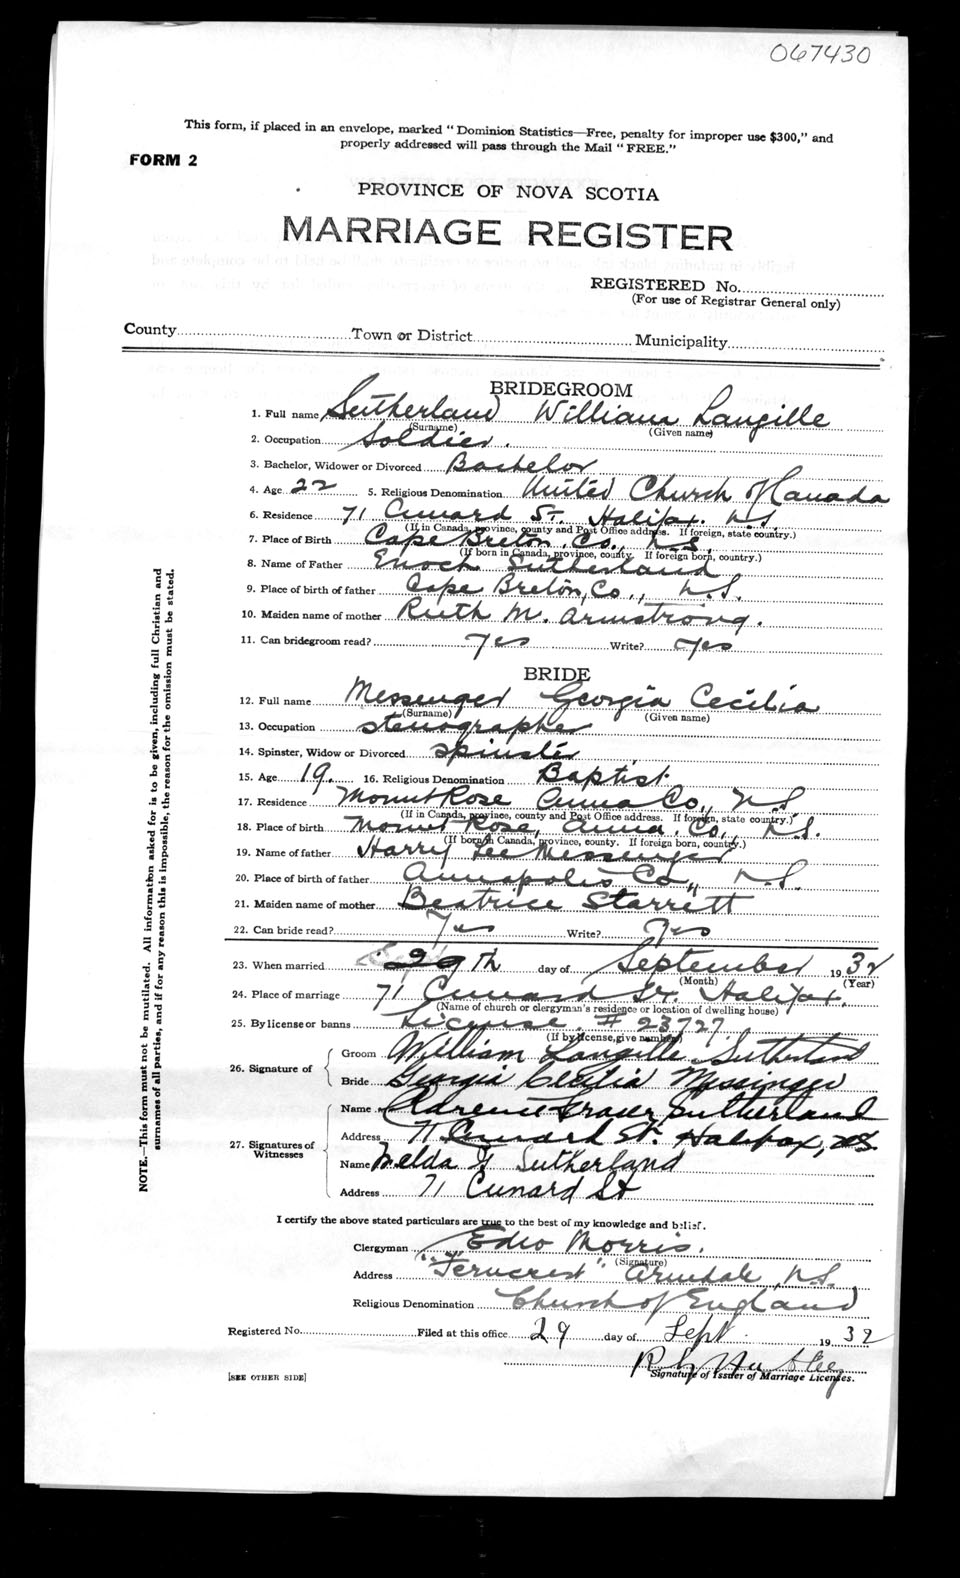 067430
This form, if placed in an envelope, marked "Dominion Statistics—Free, penalty for improper use $300," and
properly addressed will pass through the Mail "FREE."
FORM 2
PROVINCE OF NOVA SCOTIA
MARRIAGE REGISTER
REGISTERED No.
(For use of Registrar General only)
County Town or District Municipality
BRIDEGROOM
1. Full name Sutherland William Langille
(Surname) (Given name)
2. Occupation Soldier.
3. Bachelor, Widower or Divorced Bachelor
4. Age 22 5. Religious Denomination United Church of Canada
6. Residence 71 Cunard St. Halifax. N.S.
(If in Canada, province, county and Post Office address. If foreign, state country.)
7. Place of Birth Cape Breton, Co., N.S.
(If born in Canada, province, county. If foreign born, country.)
8. Name of Father Enoch Sutherland
9. Place of birth of father Cape Breton, Co., N.S.
10. Maiden name of mother Ruth M. Armstrong.
11. Can bridegroom read? Yes Write? Yes
BRIDE
12. Full name Messenger Georgia Cecilia
(Surname) (Given name)
13. Occupation stenographer
14. Spinster, Widow or Divorced spinster
15. Age 19. 16. Religious Denomination Baptist.
17. Residence Mount Rose Anna Co., N.S.
(If in Canada, province, county and Post Office address. If foreign, state country.)
18. Place of birth Mount Rose, Anna. Co., N.S.
(If born in Canada, province, county. If foreign born, country.)
19. Name of father Harry Lee Messenger
20. Place of birth of father Annapolis Co., N.S.
21. Maiden name of mother Beatrice Starrett
22. Can bride read? Yes Write? Yes
23. When married 29th day of September 1932
(Month) (Year)
24. Place of marriage 71 Cunard St. Halifax.
(Name of church or clergyman's residence or location of dwelling house)
25. By license or banns License. # 23727.
(If by license, give number)
26. Signature of
Groom William Langille Sutherland
Bride Georgia Cecilia Messinger
27. Signatures of Witnesses
Name Fraser Sutherland
Address 71 Cunard St. Halifax, NS
Name Melda Sutherland
Address 71 Cunard St
I certify the above stated particulars are true to the best of my knowledge and belief.
Clergyman Morris.
(Signature)
Address "Ferncrest" Armdale, N.S.
Religious Denomination Church of England
Registered No. Filed at this office 29 day of Sept. 1932
Signature of Issuer of Marriage Licenses.
[SEE OTHER SIDE]
NOTE.—This form must not be mutilated. All information asked for is to be given, including full Christian and
surnames of all parties, and if for any reason this is impossible, the reason for the omission must be stated.